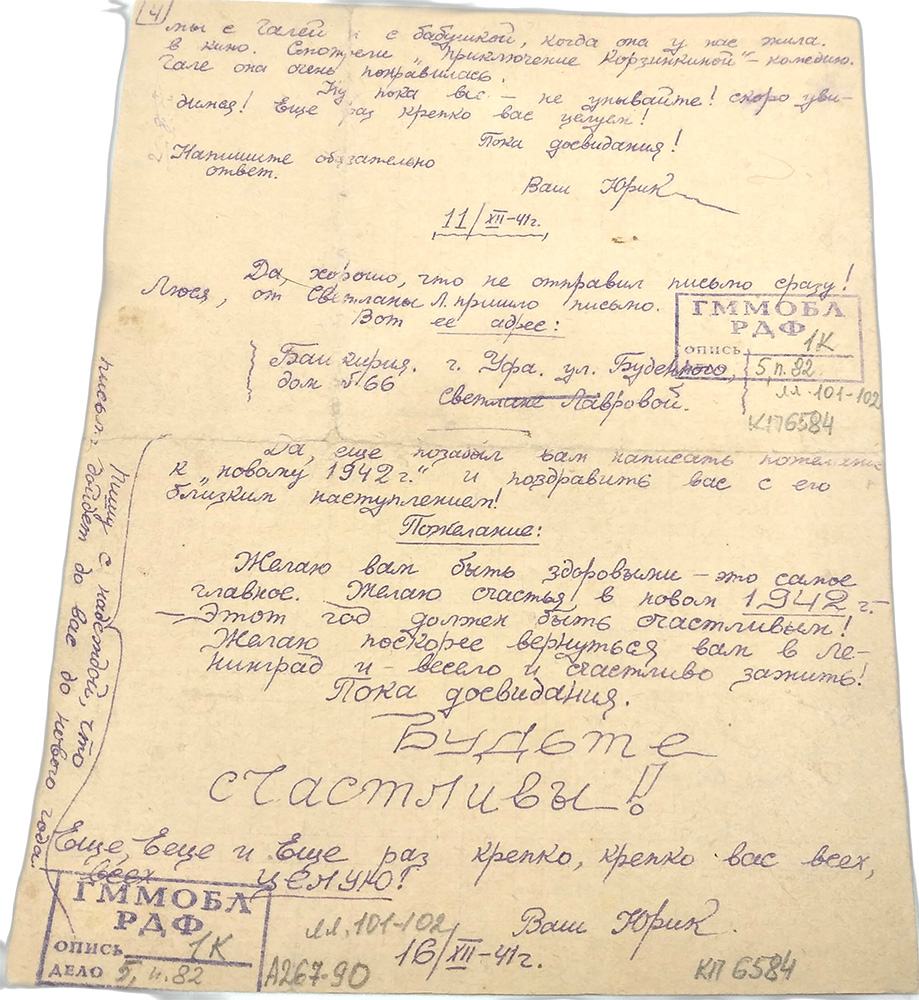 4
мы с Галей и с бабушкой, когда она у нас жила.
в кино. Смотрели „Приключение Корзинкиной" – комедию.
Гале она очень понравилась.
Ну пока всё – не унывайте! скоро уви-
димся! Еще раз крепко вас целуем!
Пока досвидания!
Напишите обязательно
ответ.
Ваш Юрик
11/XII-41г.
Да, хорошо, что не отправил письмо сразу!
Люся, от Светланы Л. пришло письмо.
Вот ее адрес:
Башкирия. г. Уфа. ул. Буденного,
дом № 66
Светлане Лавровой.
ГММОБЛ
РДФ
опись 1К
5, п. 82
лл. 101-102
КП 6584
Да, еще позабыл вам написать пожелание
к „новому 1942 г." и поздравить вас с его
близким наступлением!
Пожелание:
Желаю вам быть здоровыми – это самое
главное. Желаю счастья в новом 1942 г. –
– Этот год должен быть счастливым!
Желаю поскорее вернуться вам в Ле-
нинград и – весело и счастливо зажить!
Пока досвидания.
Будьте
счастливы!!
Еще, Еще и Еще раз крепко, крепко вас всех,
всех ЦЕЛУЮ!
Ваш Юрик.
16/XII-41г.
Пишу с надеждой, что
письмо дойдет до вас до нового года.
ГММОБЛ
РДФ
опись 1К
дело 5, п. 82
лл. 101-102
А267-90
КП 6584